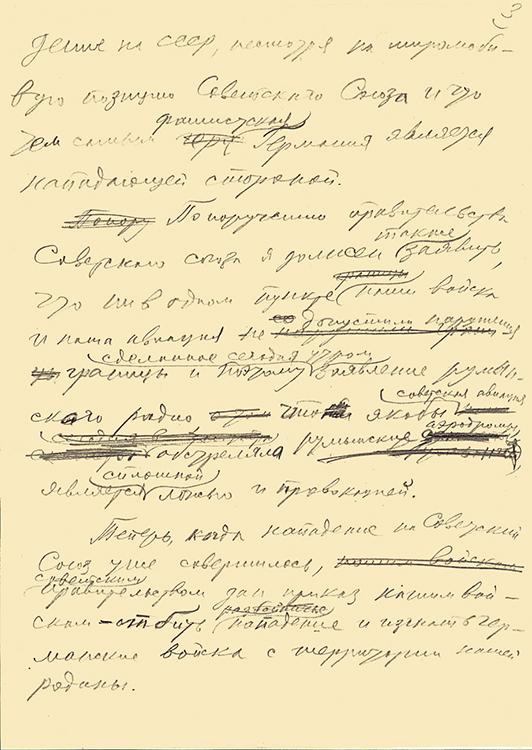 3
дение на СССР, несмотря на миролюби-
вую позицию Советского Союза и что
фашистская
тем самым Германия является
нападающей стороной.
По поручению правительства
также
Советского союза я должен заявить,
что ни в одном пункте наши войска
допустили нарушения
и наша авиация не
сделанное сегодня утром
границы и поэтому заявление румын-
советская авиация
ского радио что якобы
аэродромы,
обстреляла румынские
сплошной
является ложью и провокацией.
Теперь, когда нападение на Советский
Союз уже совершилось,
советским
правительством дан приказ нашим вой-
разбойничье
скам – отбить нападение и изгнать гер-
манские войска с территории нашей
родины.